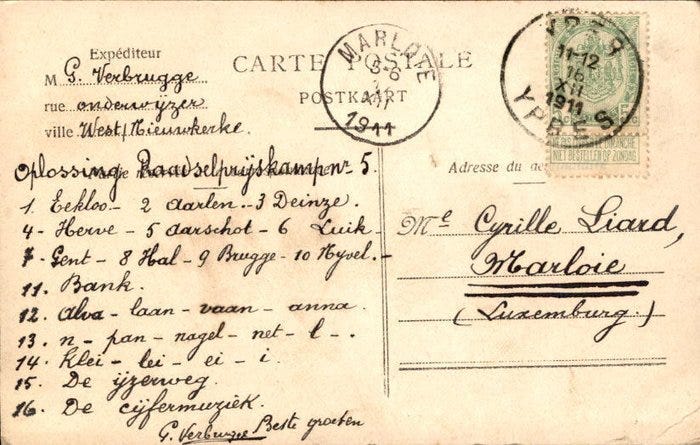 Expéditeur
M G. Verbrugge
rue onderwijzer
ville West/Nieuwkerke.
CARTE POSTALE
POSTKAART
MARLOIE
5-6
XII
1911
YPER
11-12
16
XII
1911
YPRES
NIET BESTELLEN OP ZONDAG
Oplossing Raadselprijskamp nr 5.
1 Eekloo - 2 Aarlen - 3 Deinze.
4 - Herve - 5 Aarschot - 6 Luik -
7 - Gent - 8 Hal - 9 Brugge - 10 Nyvel. -
11. Bank.
12. Alva - laan - vaan - anna.
13. n - pan - nagel - net - l - .
14. Klei - lei - ei - i.
15. De ijzerweg.
16. De cijfermuziek.
G. Verbrugge Beste groeten
Adresse du
Me Cyrille Liard,
Marloie
(Luxemburg.)